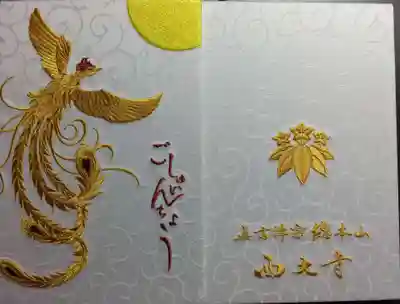 ごしゅいんちょう
真言律宗 總本山
西大寺